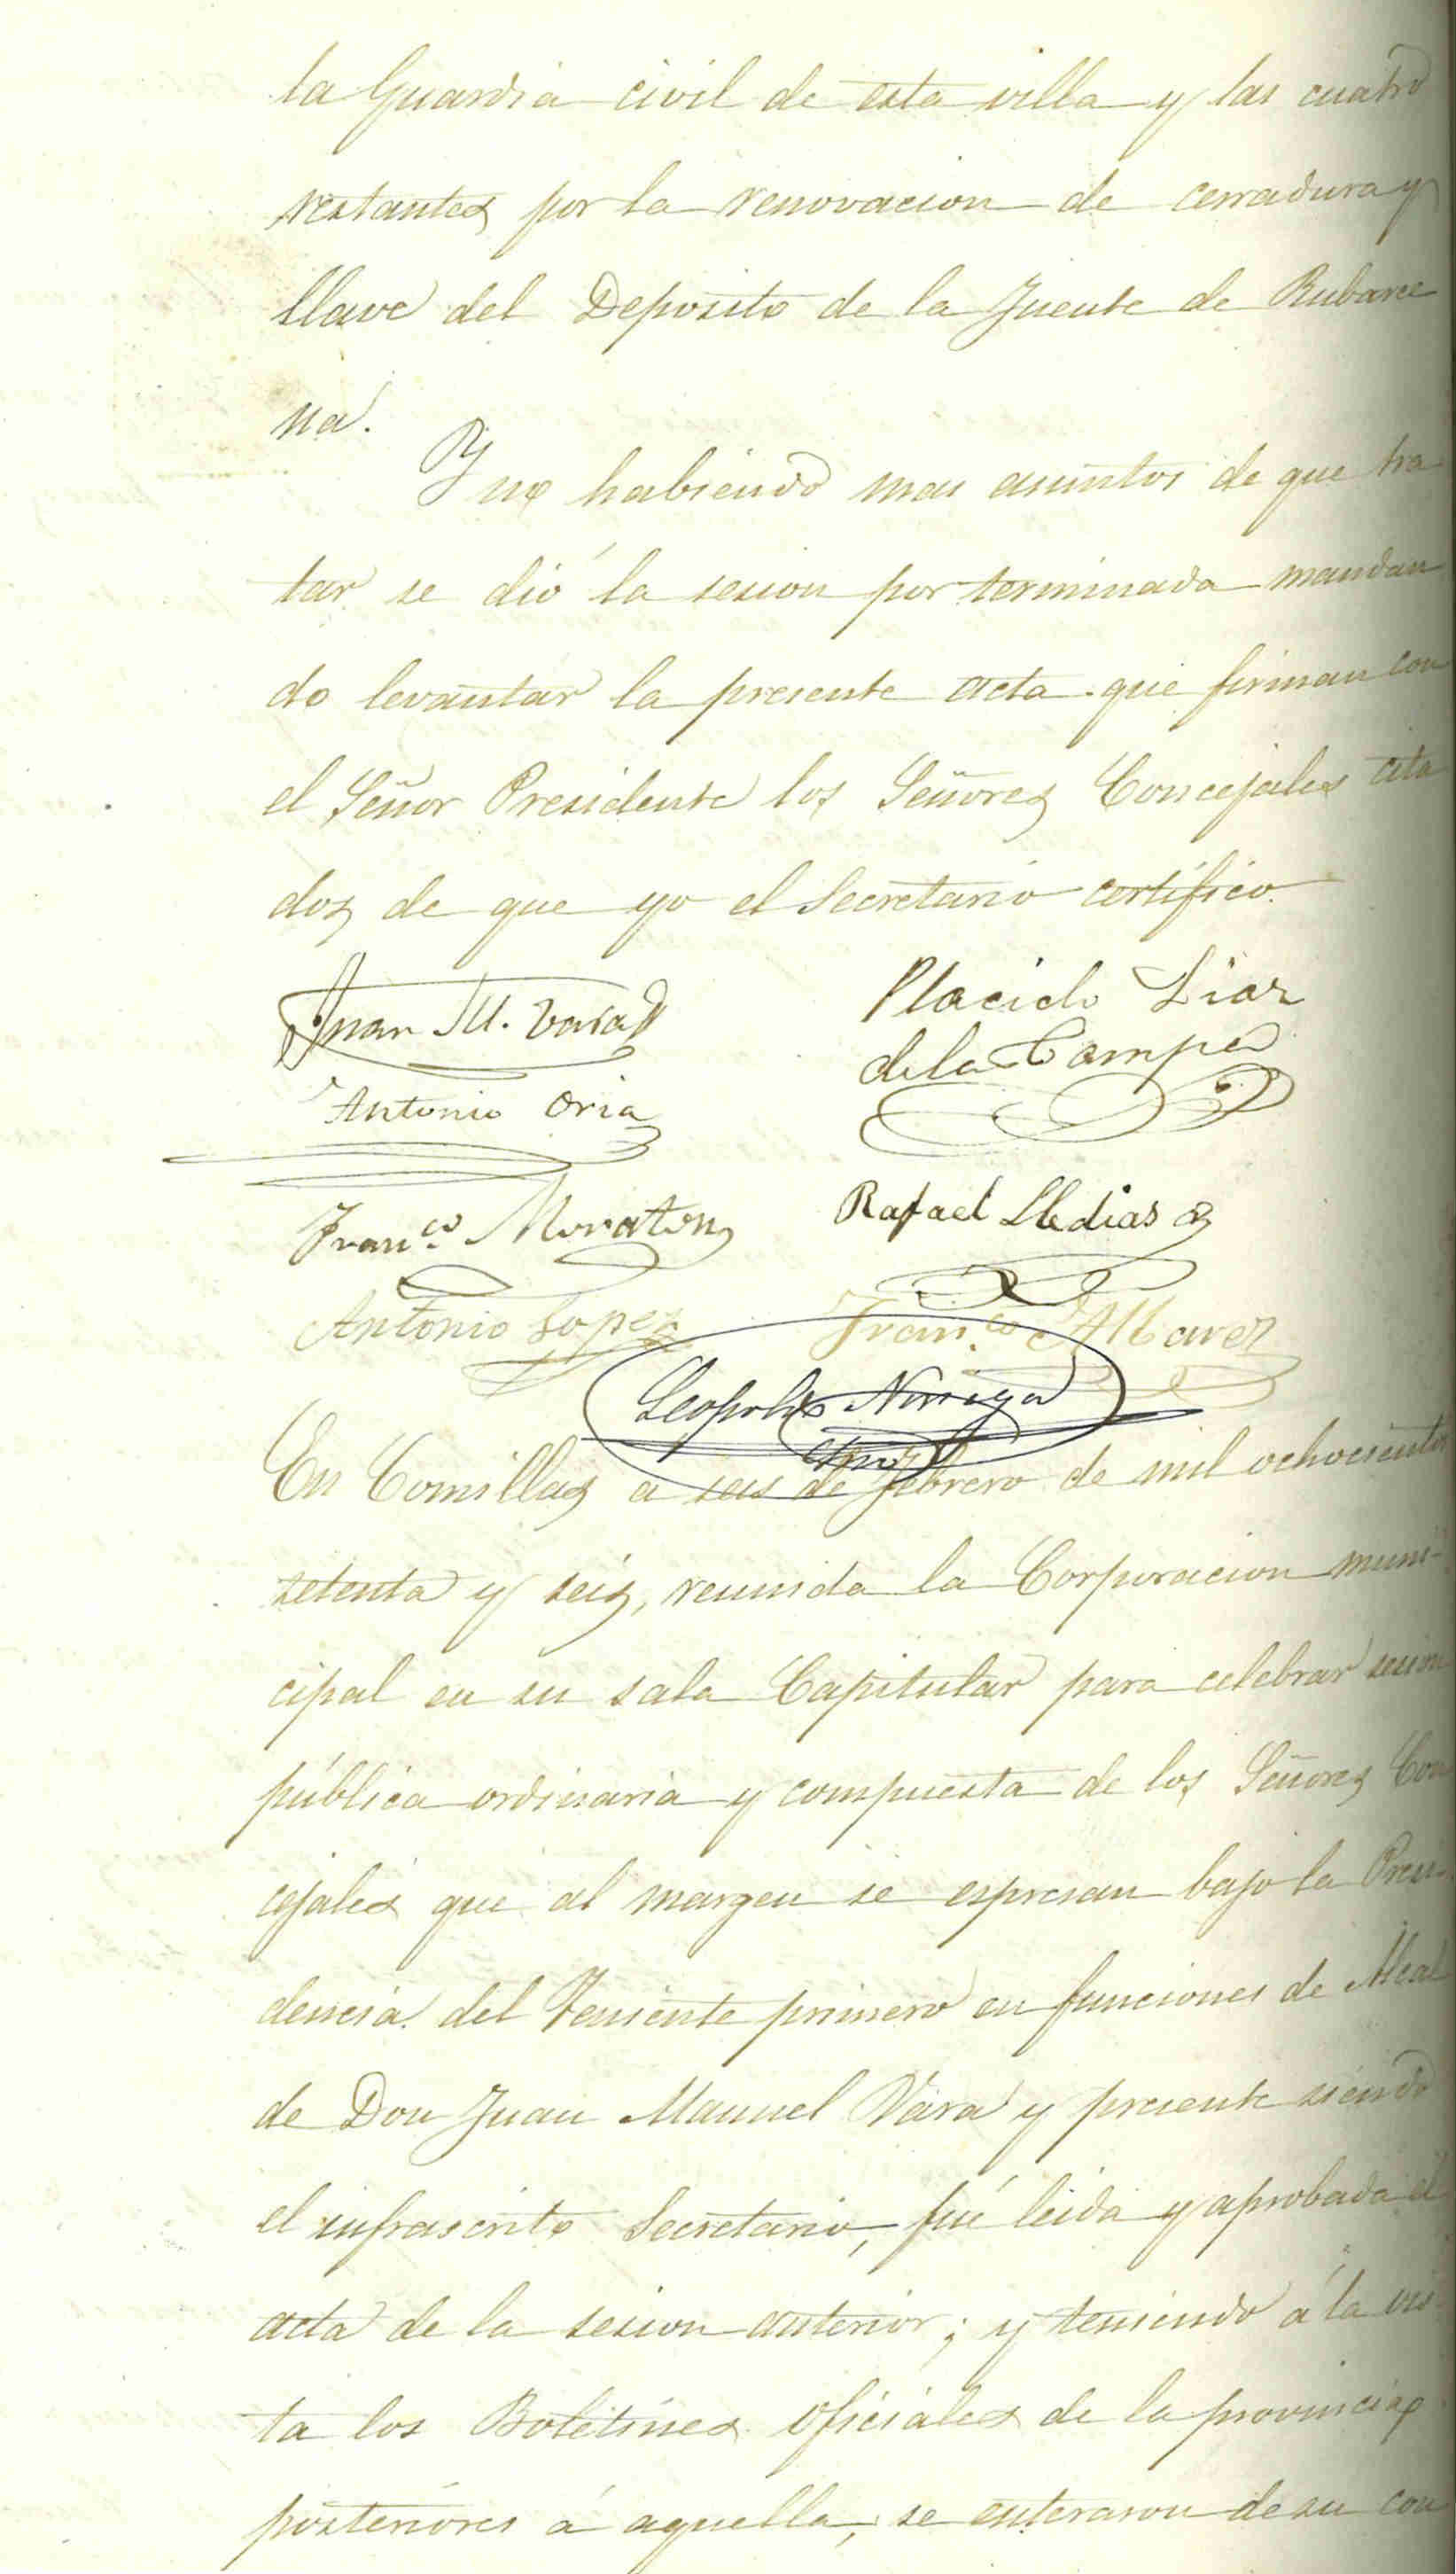 la Guardia civil de esta villa y las cuatro
restantes por la renovacion de cerradura y
llave del Deposito de la Fuente de Rubarce
na.
Y no habiendo mas asuntos de que tra
tar se dió la sesion por terminada mandan
do levantar la presente acta que firman con
el Señor Presidente los Señores Concejales cita
dos de que yo el Secretario certifico.
Juan M. Vara
Placido Diaz
de la Campa
Antonio Oria
Franco. Moraton
Rafael Lledias
Antonio Lopez
Franco. Alvarez
Leopoldo Noriega
En Comillas a seis de febrero de mil ochocientos
setenta y seis, reunida la Corporacion muni-
cipal en su sala Capitular para celebrar sesion
pública ordinaria y compuesta de los Señores Con
cejales que al margen se espresan bajo la Presi-
dencia del Teniente primero en funciones de Alcal
de Don Juan Manuel Vara y presente siendo
el infrascrito Secretario, fué leida y aprobada el
acta de la sesion anterior; y teniendo á la vis
ta los Boletines oficiales de la provincia
posteriores á aquella, se enteraron de su con